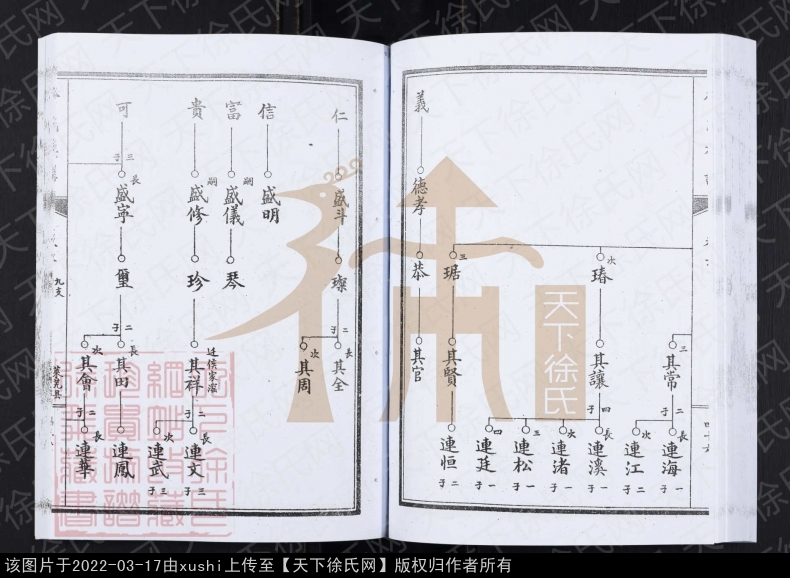 三
其常
子二
長
連海
子一
次
連江
子二
次
瑃
其讓
子四
長
連溪
子一
次
連渚
子一
三
連松
子一
四
連廷
子一
三
琚
其賢
連恒
子二
義
德孝
恭
其官
仁
盛斗
璨
子二
長
其全
次
其周
信
盛明
富
嗣
盛儀
琴
貴
嗣
盛修
珍
遷侯家溜
其祥
子二
長
連文
子三
次
連武
子三
可
子三
長
盛寧
璽
子二
長
其田
連鳳
子一
次
其會
子二
長
連華
九支
萊芜县
天下徐氏
天下徐氏网
该图片于2022-03-17由xushi上传至【天下徐氏网】版权归作者所有